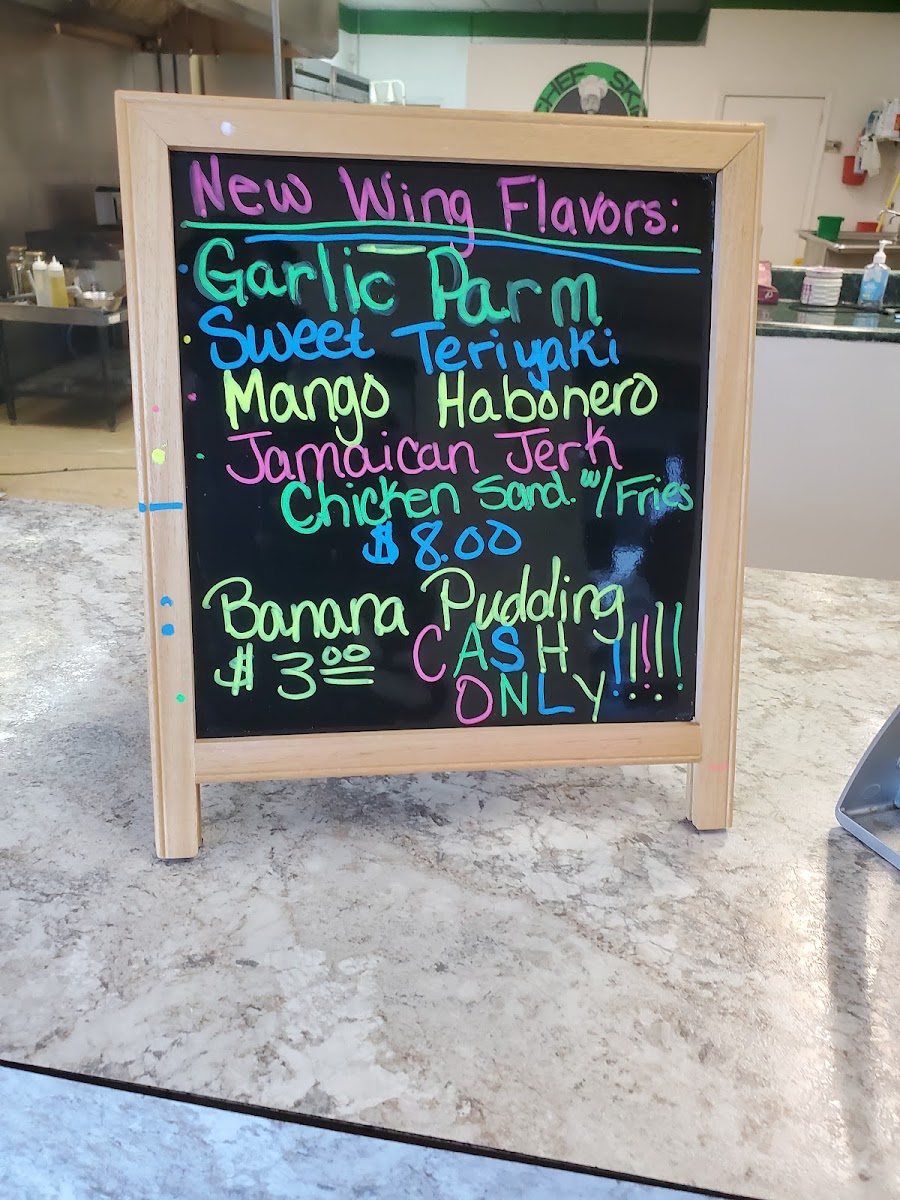 CHEF SKI
New Wing Flavors:
Garlic Parm
Sweet Teriyaki
Mango Habonero
Jamaican Jerk
Chicken Sand. w/Fries
$8.00
Banana Pudding
$3.00 CASH !!!!!
ONLY